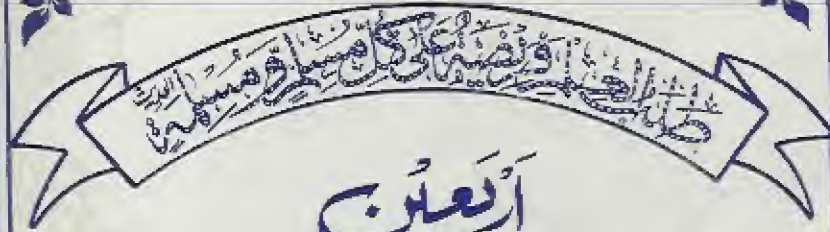 طَلَبُ الْعِلْمِ فَرِيضَةٌ عَلَى كُلِّ مُسْلِمٍ وَّ مُسْلِمَةٍ الحديث
أَرْبَعِيْن